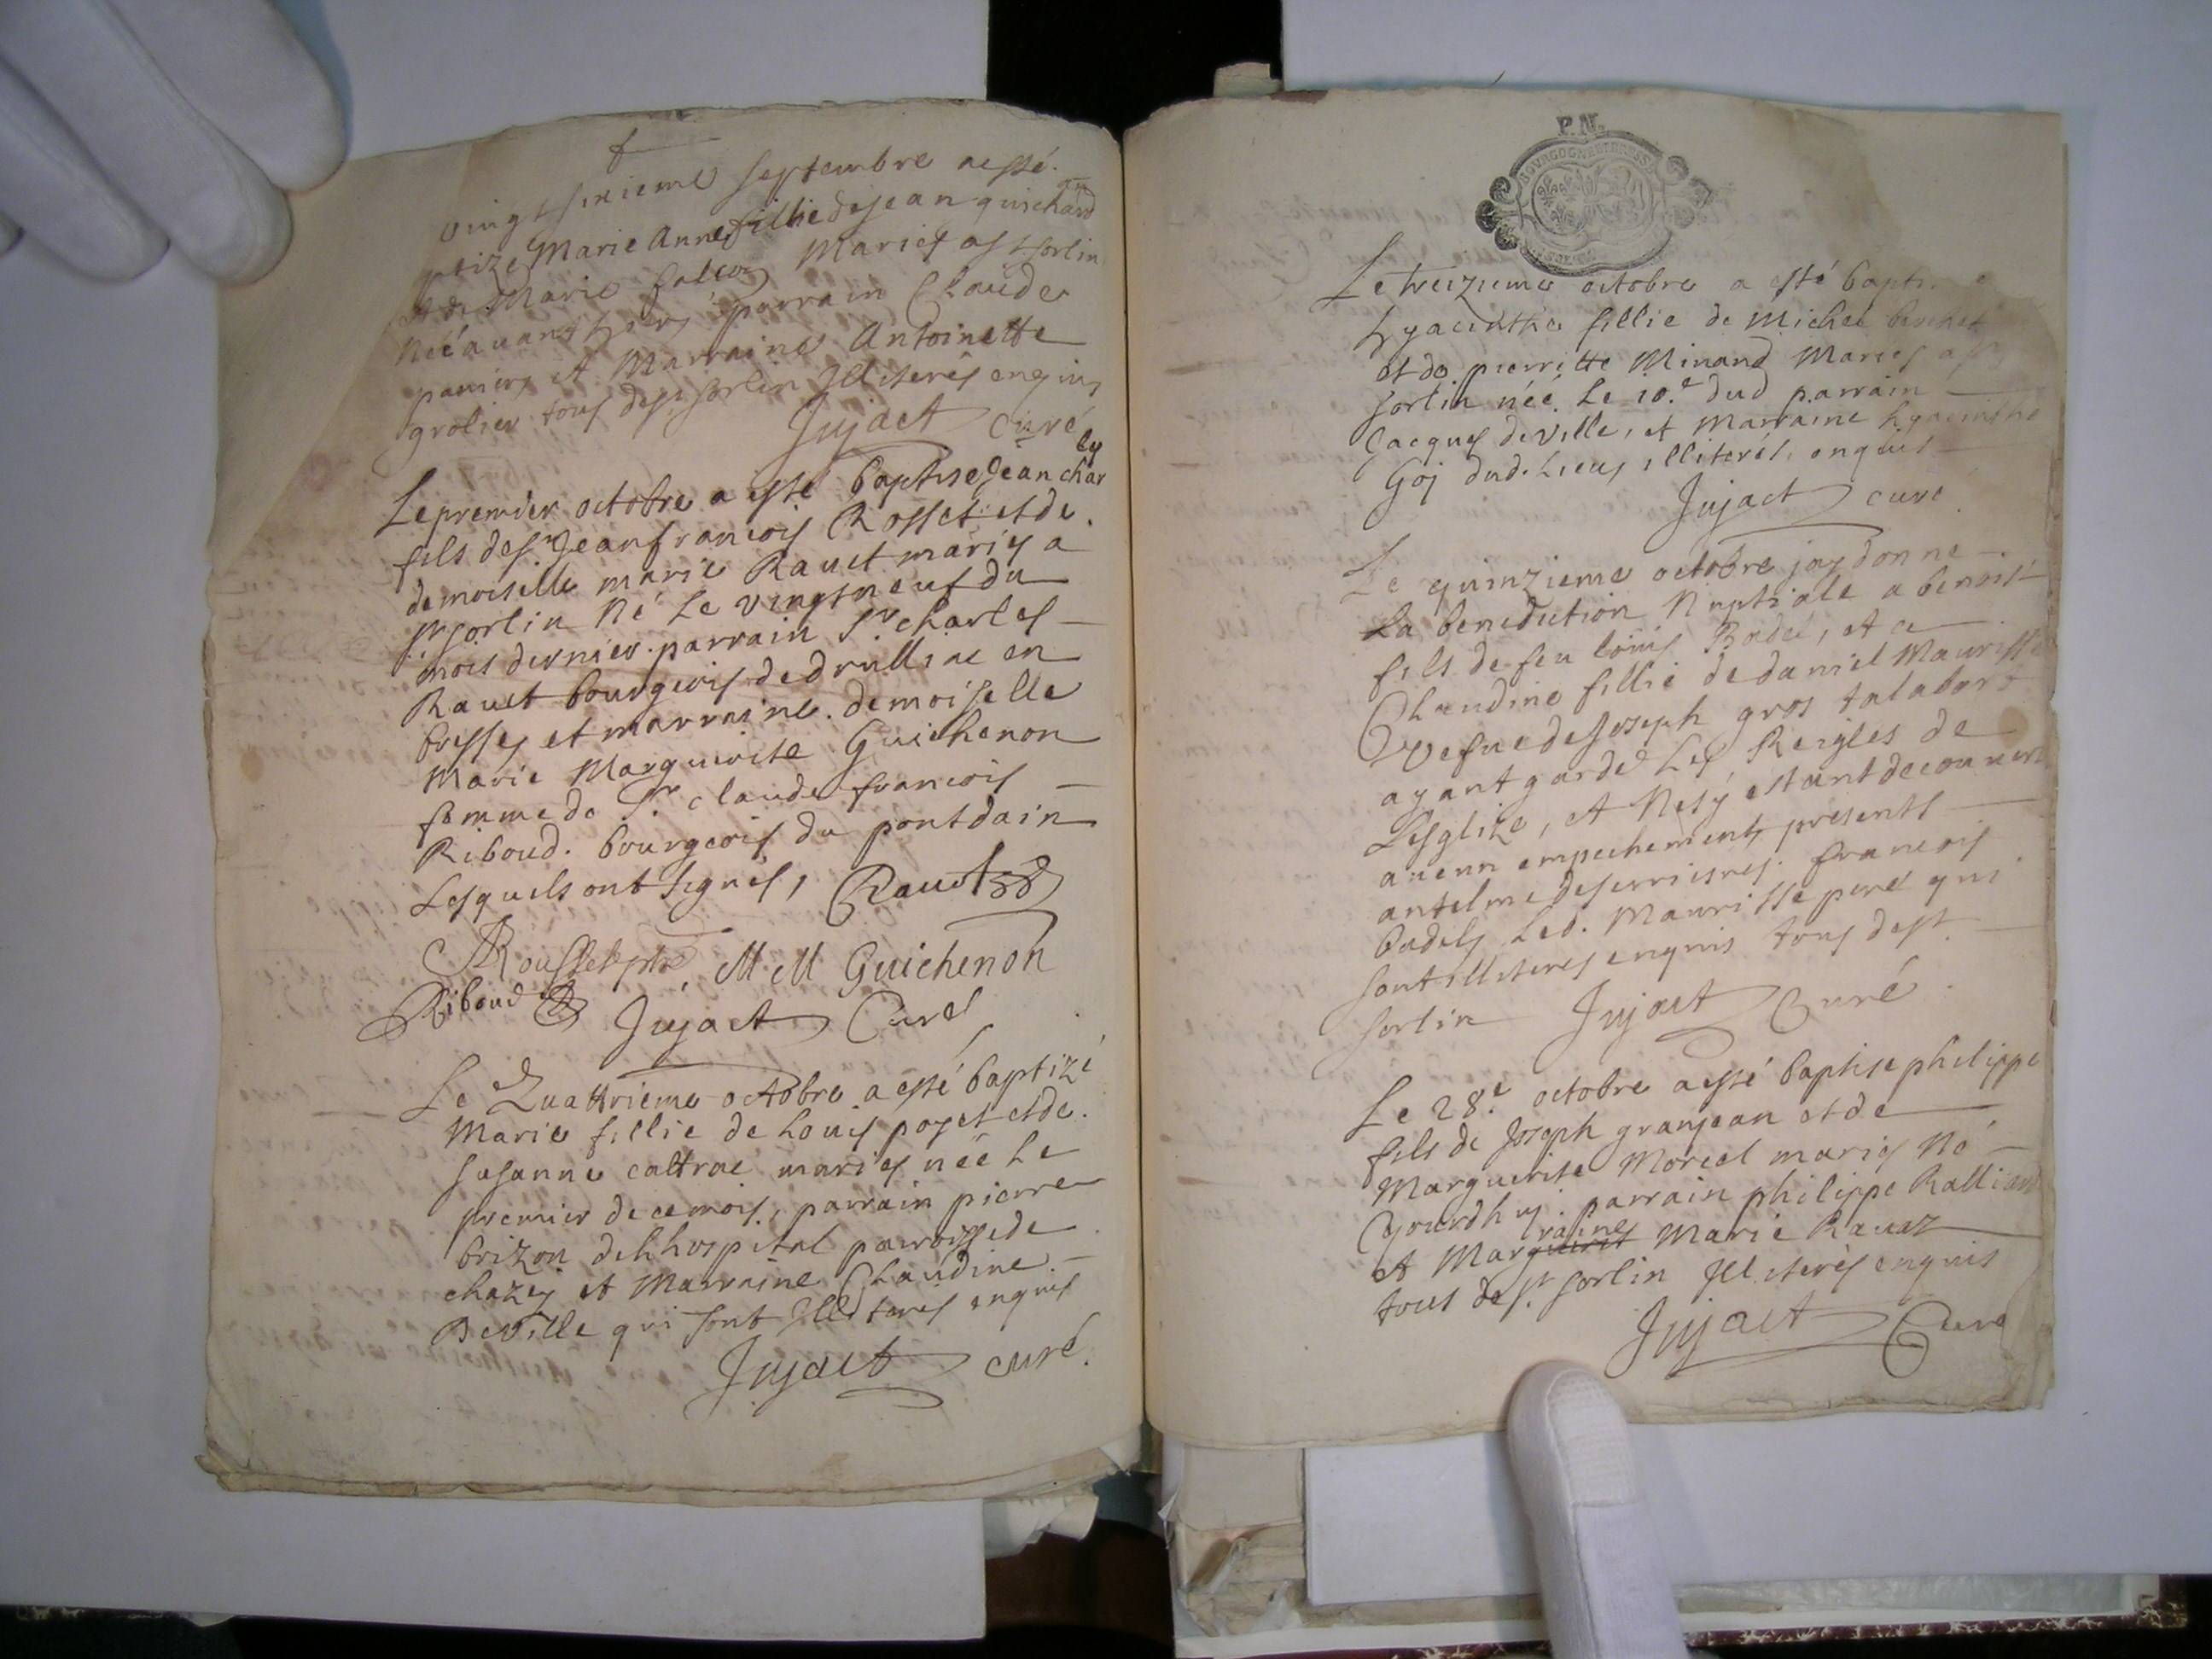 vingt sixieme septembre a esté
ptize Marie Anne fillie de Jean guichard
et de Marie falcoz Mariés a st sorlin
néé avant hier, parrain Claude
paniers et Marraine Antoinette
grolier tous de st sorlin Illiterés enquis
Jujact Curé
Le premier octobre a esté baptise Jean char
ly
fils de sr Jean francois Rosset et de
demoiselle marie Rauet mariés a
st sorlin Né Le vingt neuf du
mois dernier. parrain sr charles
Rauet bourgeois de drulliac en
bresse, et marraine. demoiselle
Marie Marguerite Guichenon
femme de Sr claude francois
Riboud. bourgeois du pont dain
Lesquels ont signés, Rauet
Rousset ptre, M M Guichenon
Riboud Jujact Curé
Le Quattrieme octobre a esté baptizé
Marie fillie de Louis poget et de.
susanne caltrae mariés néé Le
premier de ce mois, parrain pierre
brizon de Lhospital parroisse de
chazey et Marraine Claudine
Beville qui sont Illiterés enquis
Jujact curé.
P.N.
BOURGOGNE BRESSE
Le treizieme octobre a esté bapti
hyacinthe fillie de Michel
et de pierrette Minand Mariés a st
sorlin néé Le 10.e dud parrain
Jacques deville, et Marraine hyacinthe
Goj dud. Lieu, illiterés, enquis
Jujact curé
Le quinzieme octobre jay donne
La benediction Nuptiale a benoist
fils de feu Louis Badel, et a
Claudine fillie de daniel Maurisse
vefue de Joseph gros talabard
ayant gardé Les Reigles de
Lesglize, et Nesÿ estant decouuert
aucun empechement, presents
antelme deserrieres. francois
badel, Led. Maurisse pere qui
sont illiterés enquis tous de st.
sorlin Jujact Curé
Le 28.e octobre a esté baptise philippe
fils de Joseph granjean et de
Marguerite Morel mariés Né
Ajourdhuj. parrain philippe Ralliard
raine
et Marguerit Marie Rauaz
tous de st sorlin Illiterés enquis
Jujact Curé